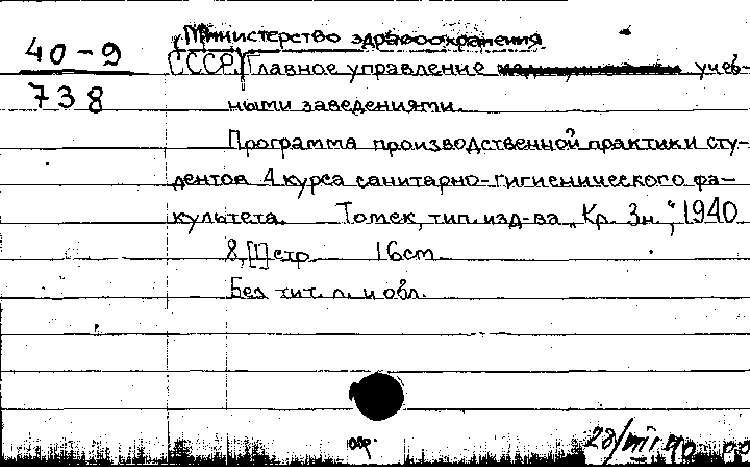 40-9
738
Министерство здравоохранения
СССР. Главное управление учеб-
ными заведениями.
Программа производственной практики сту-
дентов 4 курса санитарно-гигиенического фа-
культета. Томск, тип. изд-ва „Кр. Зн.“, 1940
8, [1] стр. 16 cm
Без тит. л. и обл.
28/VII 40